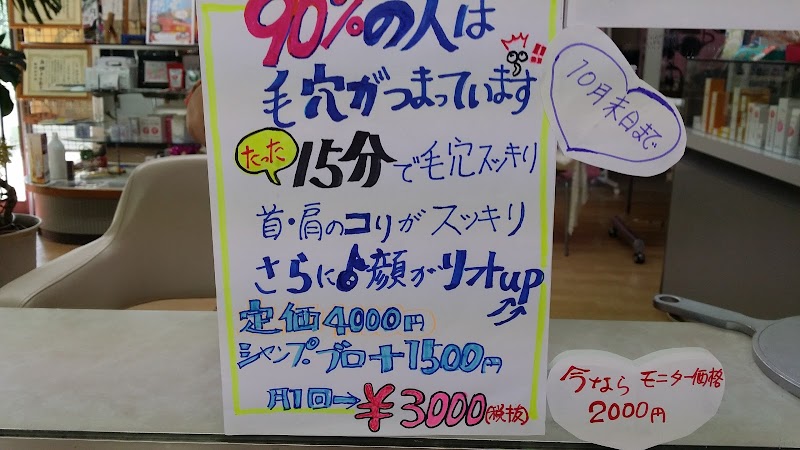 90%の人は
毛穴がつまっています
10月末日まで
たった
15分で毛穴スッキリ
首・肩のコリがスッキリ
さらに顔がリフトup
定価4000円
シャンプーブロー+1500円
月1回→¥3000(税抜)
今なら モニター価格
2000円